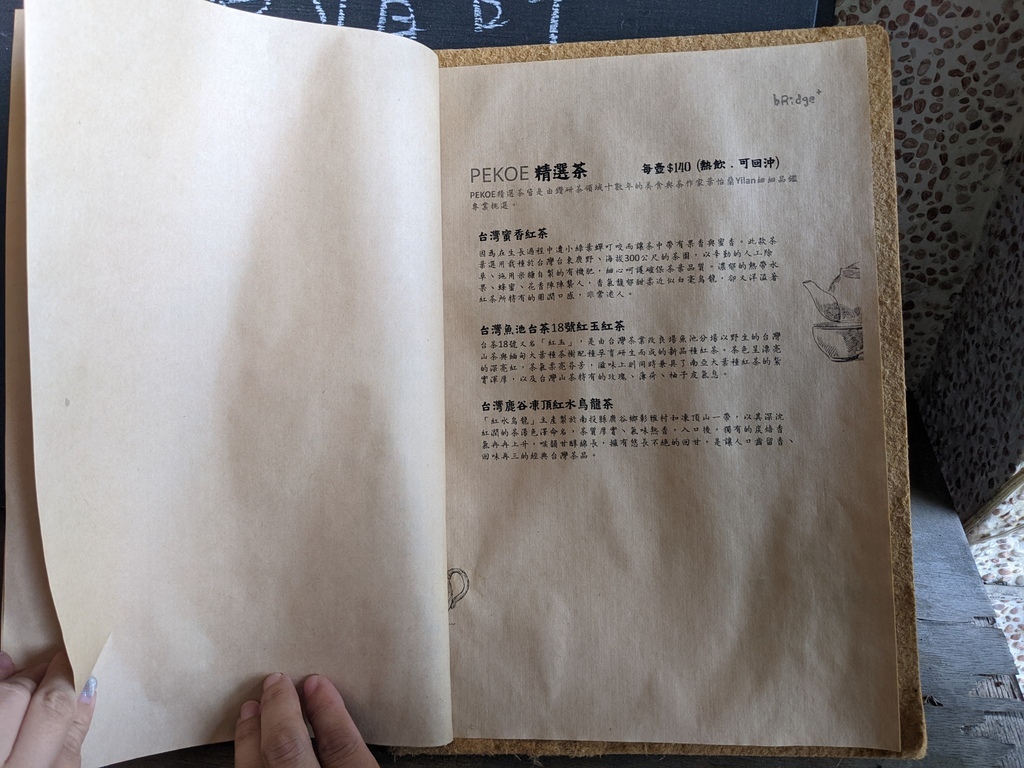 bRidge+
PEKOE 精選茶 每壺$140 (熱飲．可回沖)
PEKOE精選茶皆是由鑽研茶領域十數年的美食與茶作家葉怡蘭Yilan細細品鑑
專業挑選。
台灣蜜香紅茶
因為在生長過程中遭小綠葉蟬叮咬而讓茶中帶有果香與蜜香。此款茶
葉選用栽種於台灣台東鹿野、海拔300公尺的茶園，以辛勤的人工除
草、施用米糠自製的有機肥，細心呵護確保茶葉品質。濃郁的熱帶水
果、蜂蜜、花香陣陣襲人，香氣馥郁甜柔近似白毫烏龍，卻又洋溢著
紅茶所特有的圓潤口感，非常迷人。
台灣魚池台茶18號紅玉紅茶
台茶18號又名「紅玉」，是由台灣茶業改良場魚池分場以野生的台灣
山茶與緬甸大葉種茶樹配種孕育研生而成的新品種紅茶。茶色呈漂亮
的深亮紅，茶氣柔亮芬芳，滋味上則同時兼具了南亞大葉種紅茶的紮
實渾厚，以及台灣山茶特有的玫瑰、薄荷、柚子皮氣息。
台灣鹿谷凍頂紅水烏龍茶
「紅水烏龍」主產製於南投縣鹿谷鄉彰雅村和凍頂山一帶，以其深沈
紅潤的茶湯色澤命名，茶質厚實、氣味熟香。入口後，獨有的炭焙香
氣冉冉上升，喉韻甘醇綿長，擁有悠長不絕的回甘，是讓人口齒留香、
回味再三的經典台灣茶品。